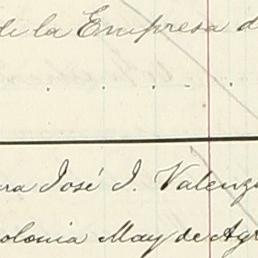 de la Empresa d
. . . . .
ra José J. Valenz
olonia May de Agr